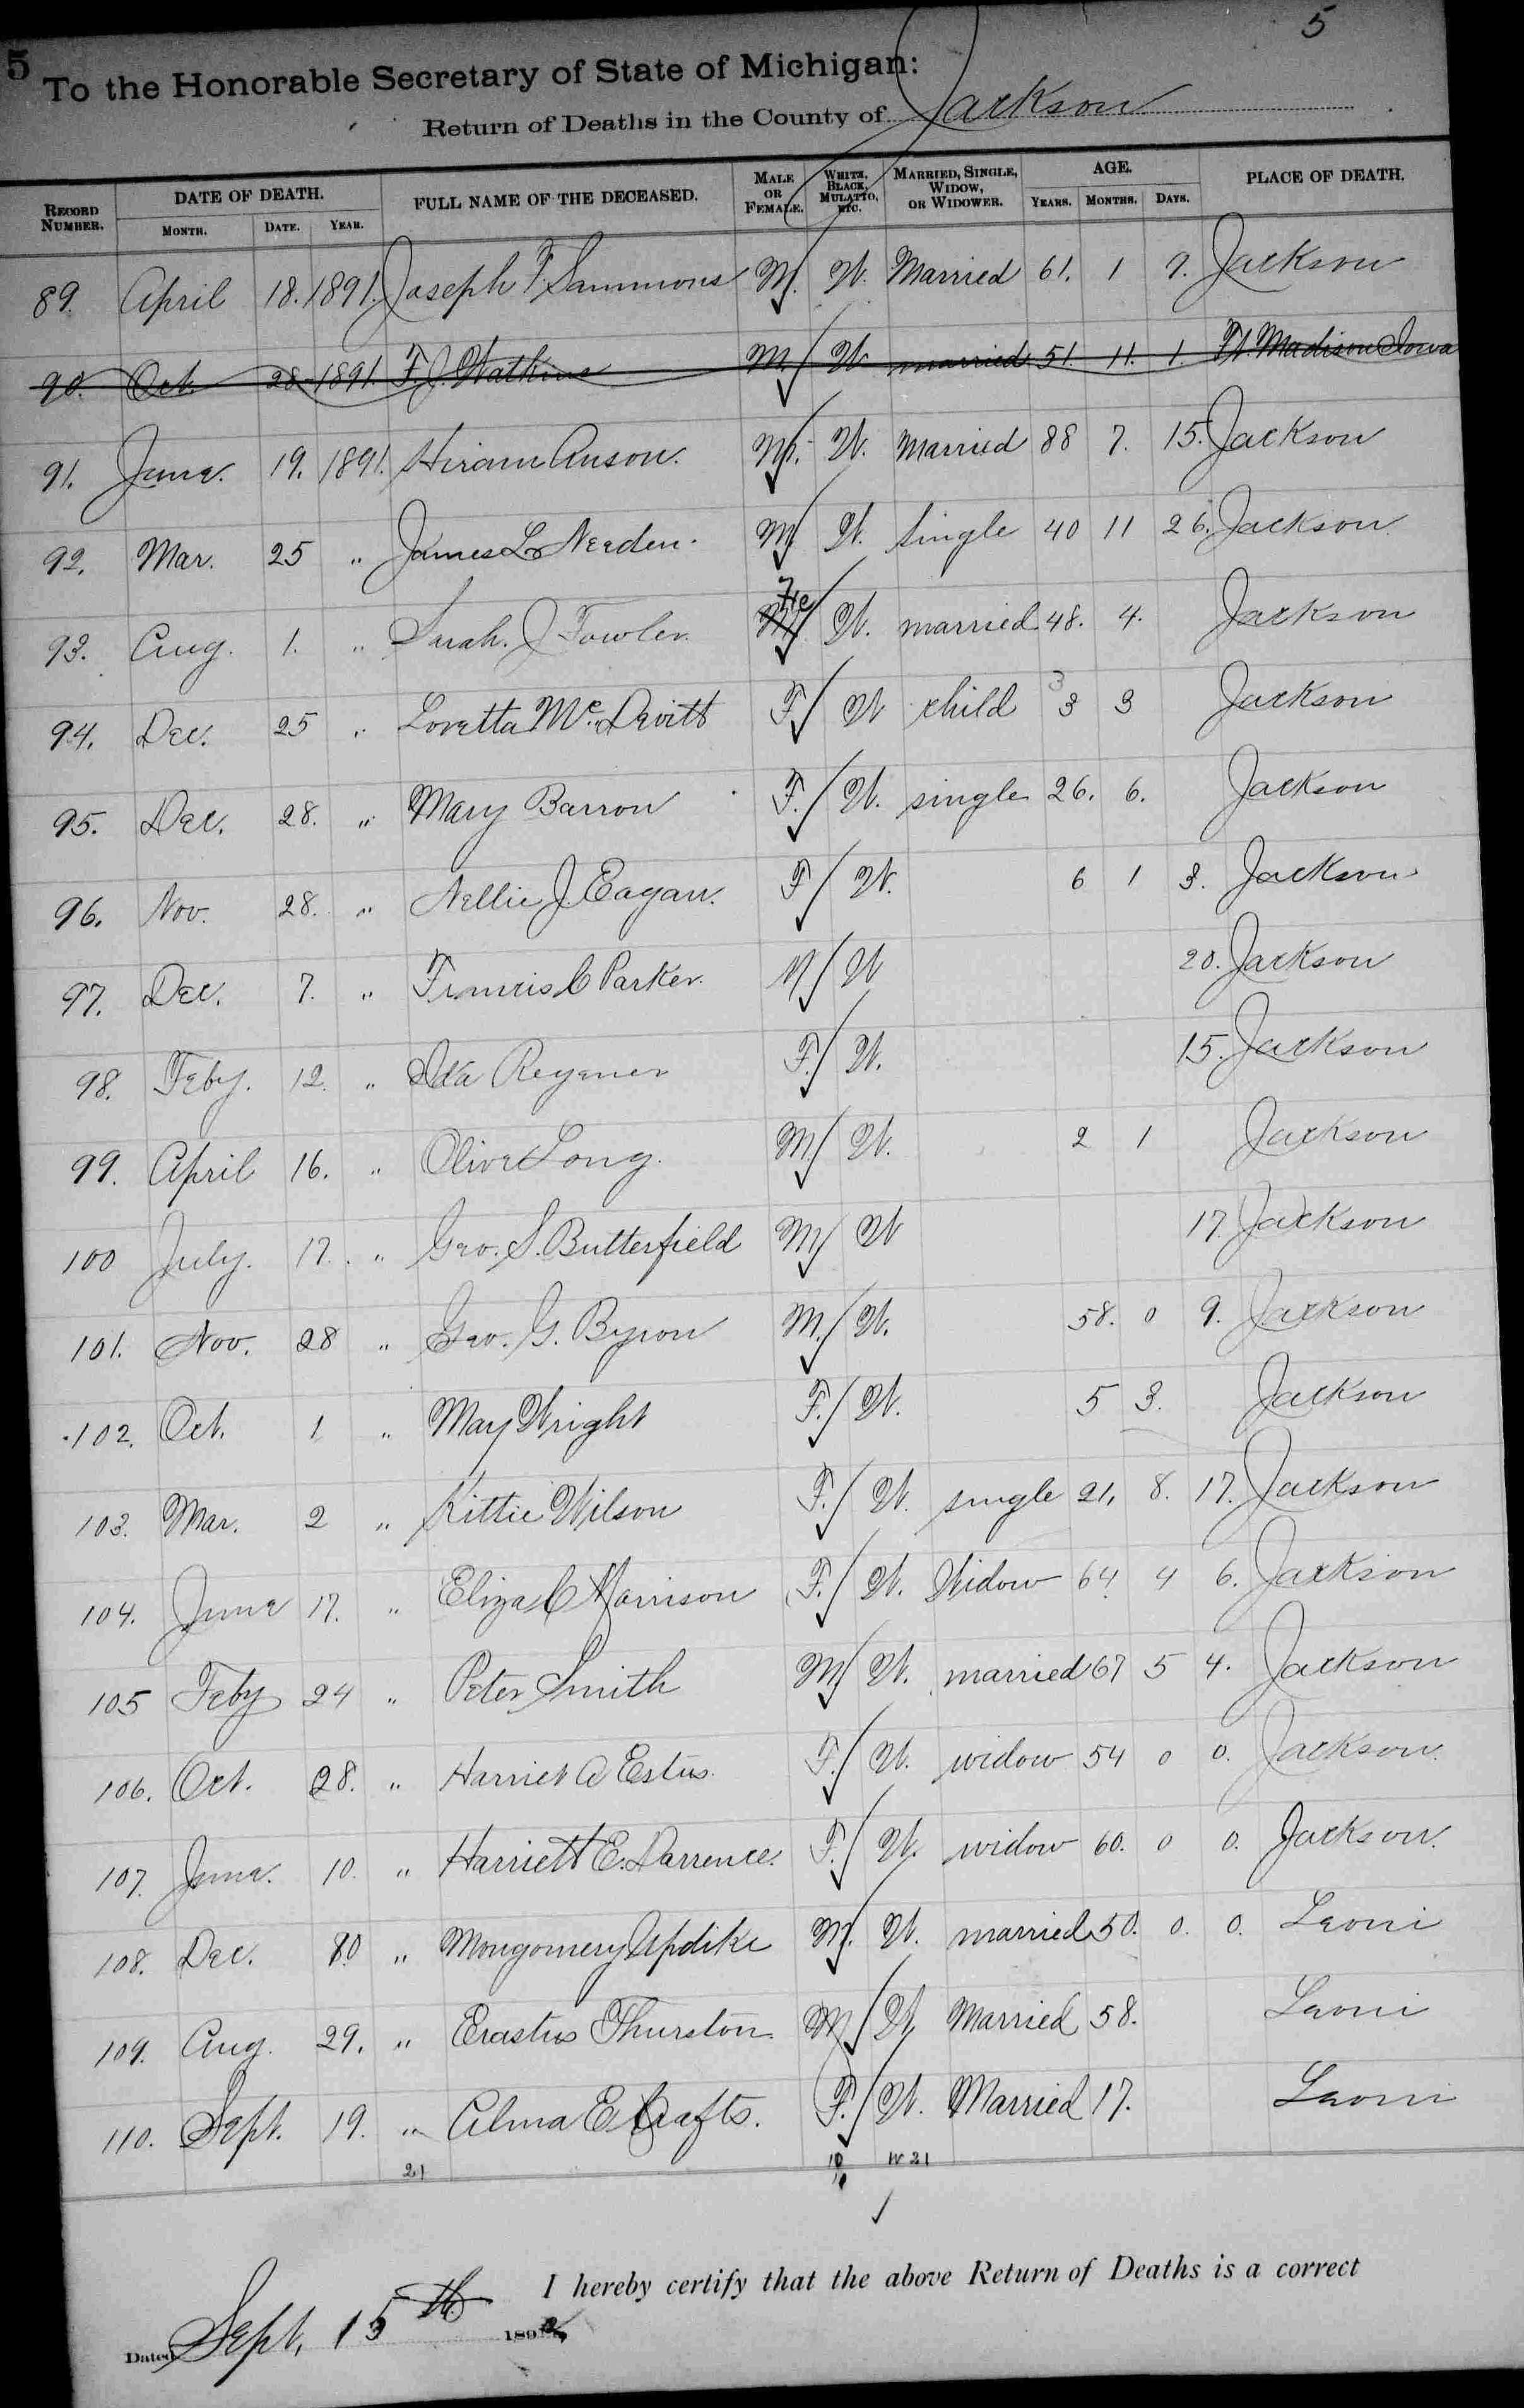 5
5
To the Honorable Secretary of State of Michigan:
Return of Deaths in the County of Jackson
RECORD NUMBER. DATE OF DEATH. MONTH. DATE. YEAR. FULL NAME OF THE DECEASED. MALE OR FEMALE. WHITE, BLACK, MULATTO, ETC. MARRIED, SINGLE, WIDOW, OR WIDOWER. AGE. YEARS. MONTHS. DAYS. PLACE OF DEATH.
89. April 18. 1891. Joseph F. Sammons M. W. Married 61. 1 7. Jackson
90. Oct. 28 1891. F. J. Watkins M. W. married 51. 11. 1. Ft. Madison Iowa
91. June. 19. 1891. Hiram Anson. M. W. Married 88 7. 15. Jackson
92. Mar. 25 " James L Needen. M W. Single 40 11 26. Jackson
93. Aug. 1. " Sarah. J Fowler. Fe W. married 48. 4. Jackson
94. Dec. 25 " Loretta Mc. Devitt F W child 3 3 Jackson
95. Dec. 28. " Mary Barron F. W. single 26. 6. Jackson
96. Nov. 28. " Nellie J. Eagan. F W. 6 1 3. Jackson
97. Dec. 7. " Francis C Parker. M W 20. Jackson
98. Feby. 12. " Ida F. W. 15. Jackson
99. April 16. " Olive Long. M. W. 2 1 Jackson
100 July. 17. " Geo. S. Butterfield M W 17. Jackson
101. Nov. 28 " Geo. G. Byron M. W. 58. 0 9. Jackson
102. Oct. 1 " May Wright F. W. 5 3. Jackson
103. Mar. 2 " Kittie Wilson F. W. single 21. 8. 17. Jackson
104. June 17. " Eliza C Morrison F. W. Widow 64 4 6. Jackson
105 Feby 24 " Peter Smith M W. married 67 5 4. Jackson
106. Oct. 28. " Harriet A Estus. F. W. widow 54 0 0. Jackson.
107. June. 10. " Harriett E. Darrence. F. W. widow 60. 0 0. Jackson.
108. Dec. " Montgomery Updike M. W. married 50. 0. 0. Leoni
109. Aug. 29. " Erastus Thurston. M W Married 58. Leoni
110. Sept. 19. " Alma E Crafts. F. W. Married 17. Leoni
21 W 21
I hereby certify that the above Return of Deaths is a correct
Dated Sept. 15th 189